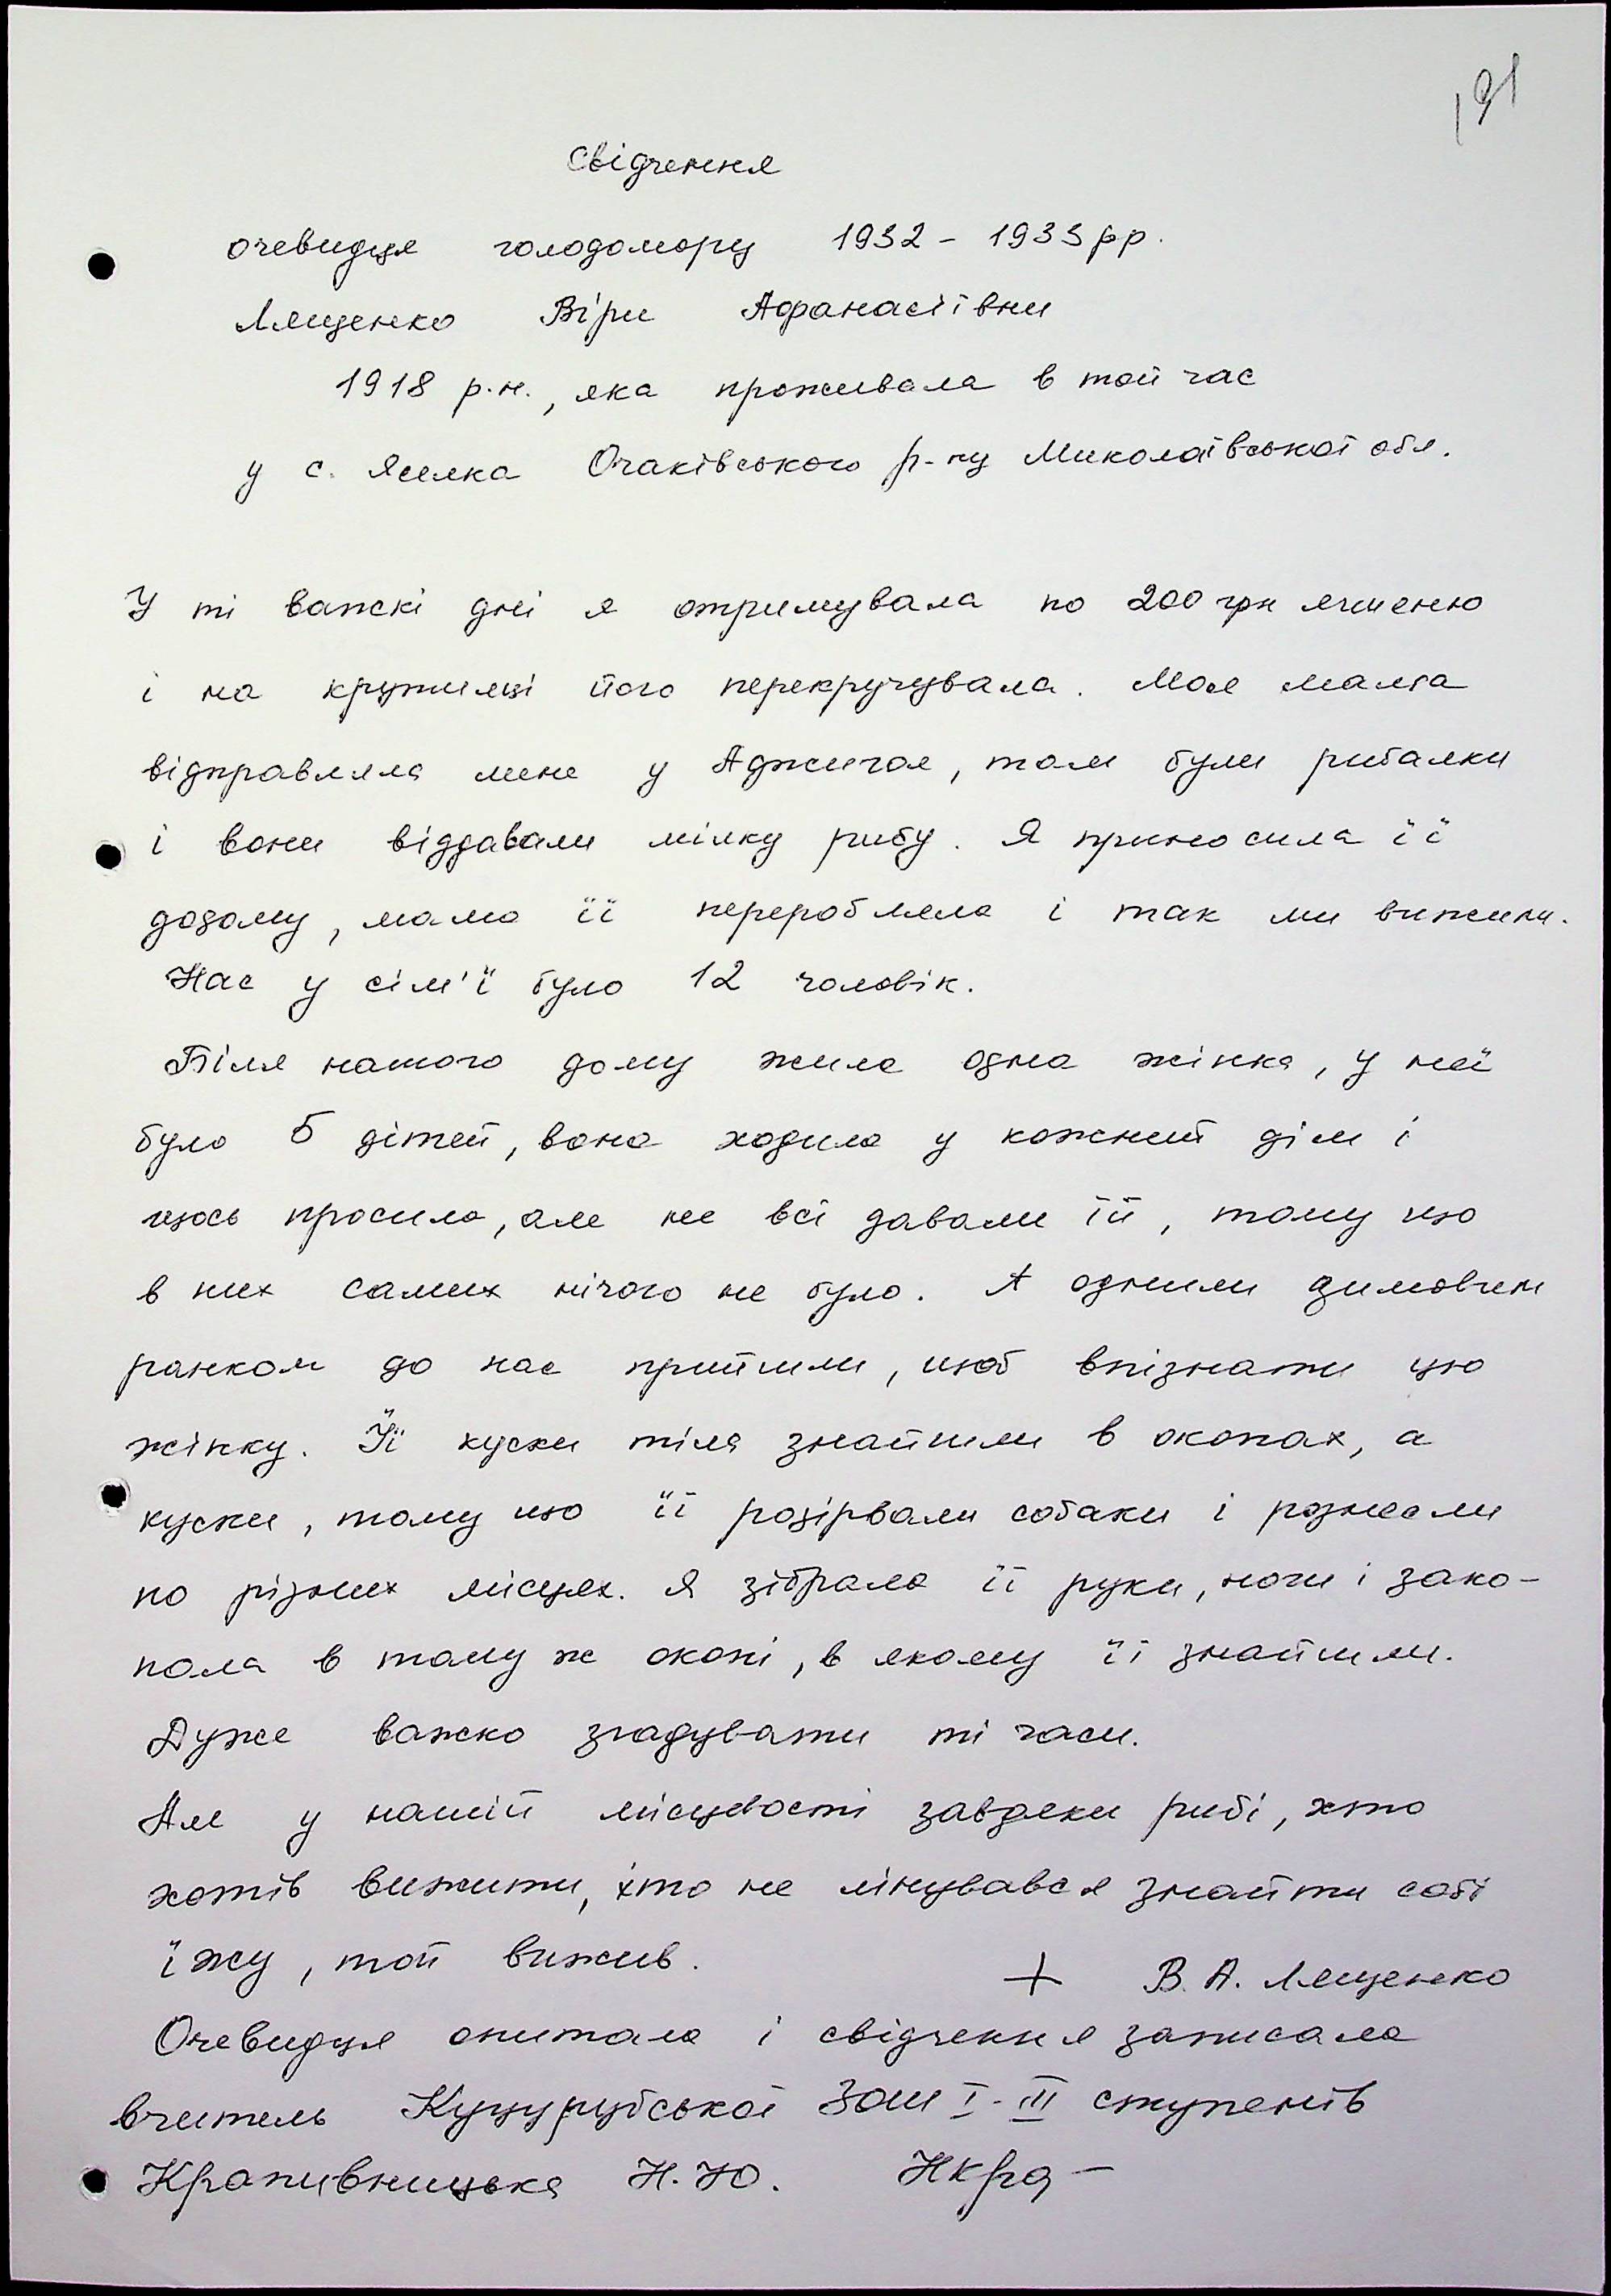 191
Свідчення
очевидця голодомору 1932 - 1933 рр.
Лященко Віри Афанасіївни
1918 р.н., яка проживала в той час
у с. Яселка Очаківського р-ну Миколаївської обл.
У ті важкі дні я отримувала по 200 грн ячменю
і на кружилці його перекручувала. Моя мама
відправляла мене у Аджигол, там були рибалки
і вони віддавали мілку рибу. Я приносила її
додому, мама її переробляла і так ми вижили.
Нас у сім'ї було 12 чоловік.
Біля нашого дому жила одна жінка, у неї
було 5 дітей, вона ходила у кожний дім і
щось просила, але не всі давали їй, тому що
в них самих нічого не було. А одними зимовим
ранком до нас прийшли, щоб впізнати цю
жінку. Її куски тіла знайшли в окопах, а
куски, тому що її розірвали собаки і рознесли
по різних місцях. Я зібрала її руки, ноги і зако-
пала в тому ж окопі, в якому її знайшли.
Дуже важко згадувати ті часи.
Але у нашій місцевості завдяки рибі, хто
хотів вижити, хто не лінувався знайти собі
їжу, той вижив.
+ В. А. Лященко
Очевидця опитала і свідчення записала
вчитель Куцурубської ЗОШ I - III ступенів
Крапивницька Н. Ю.